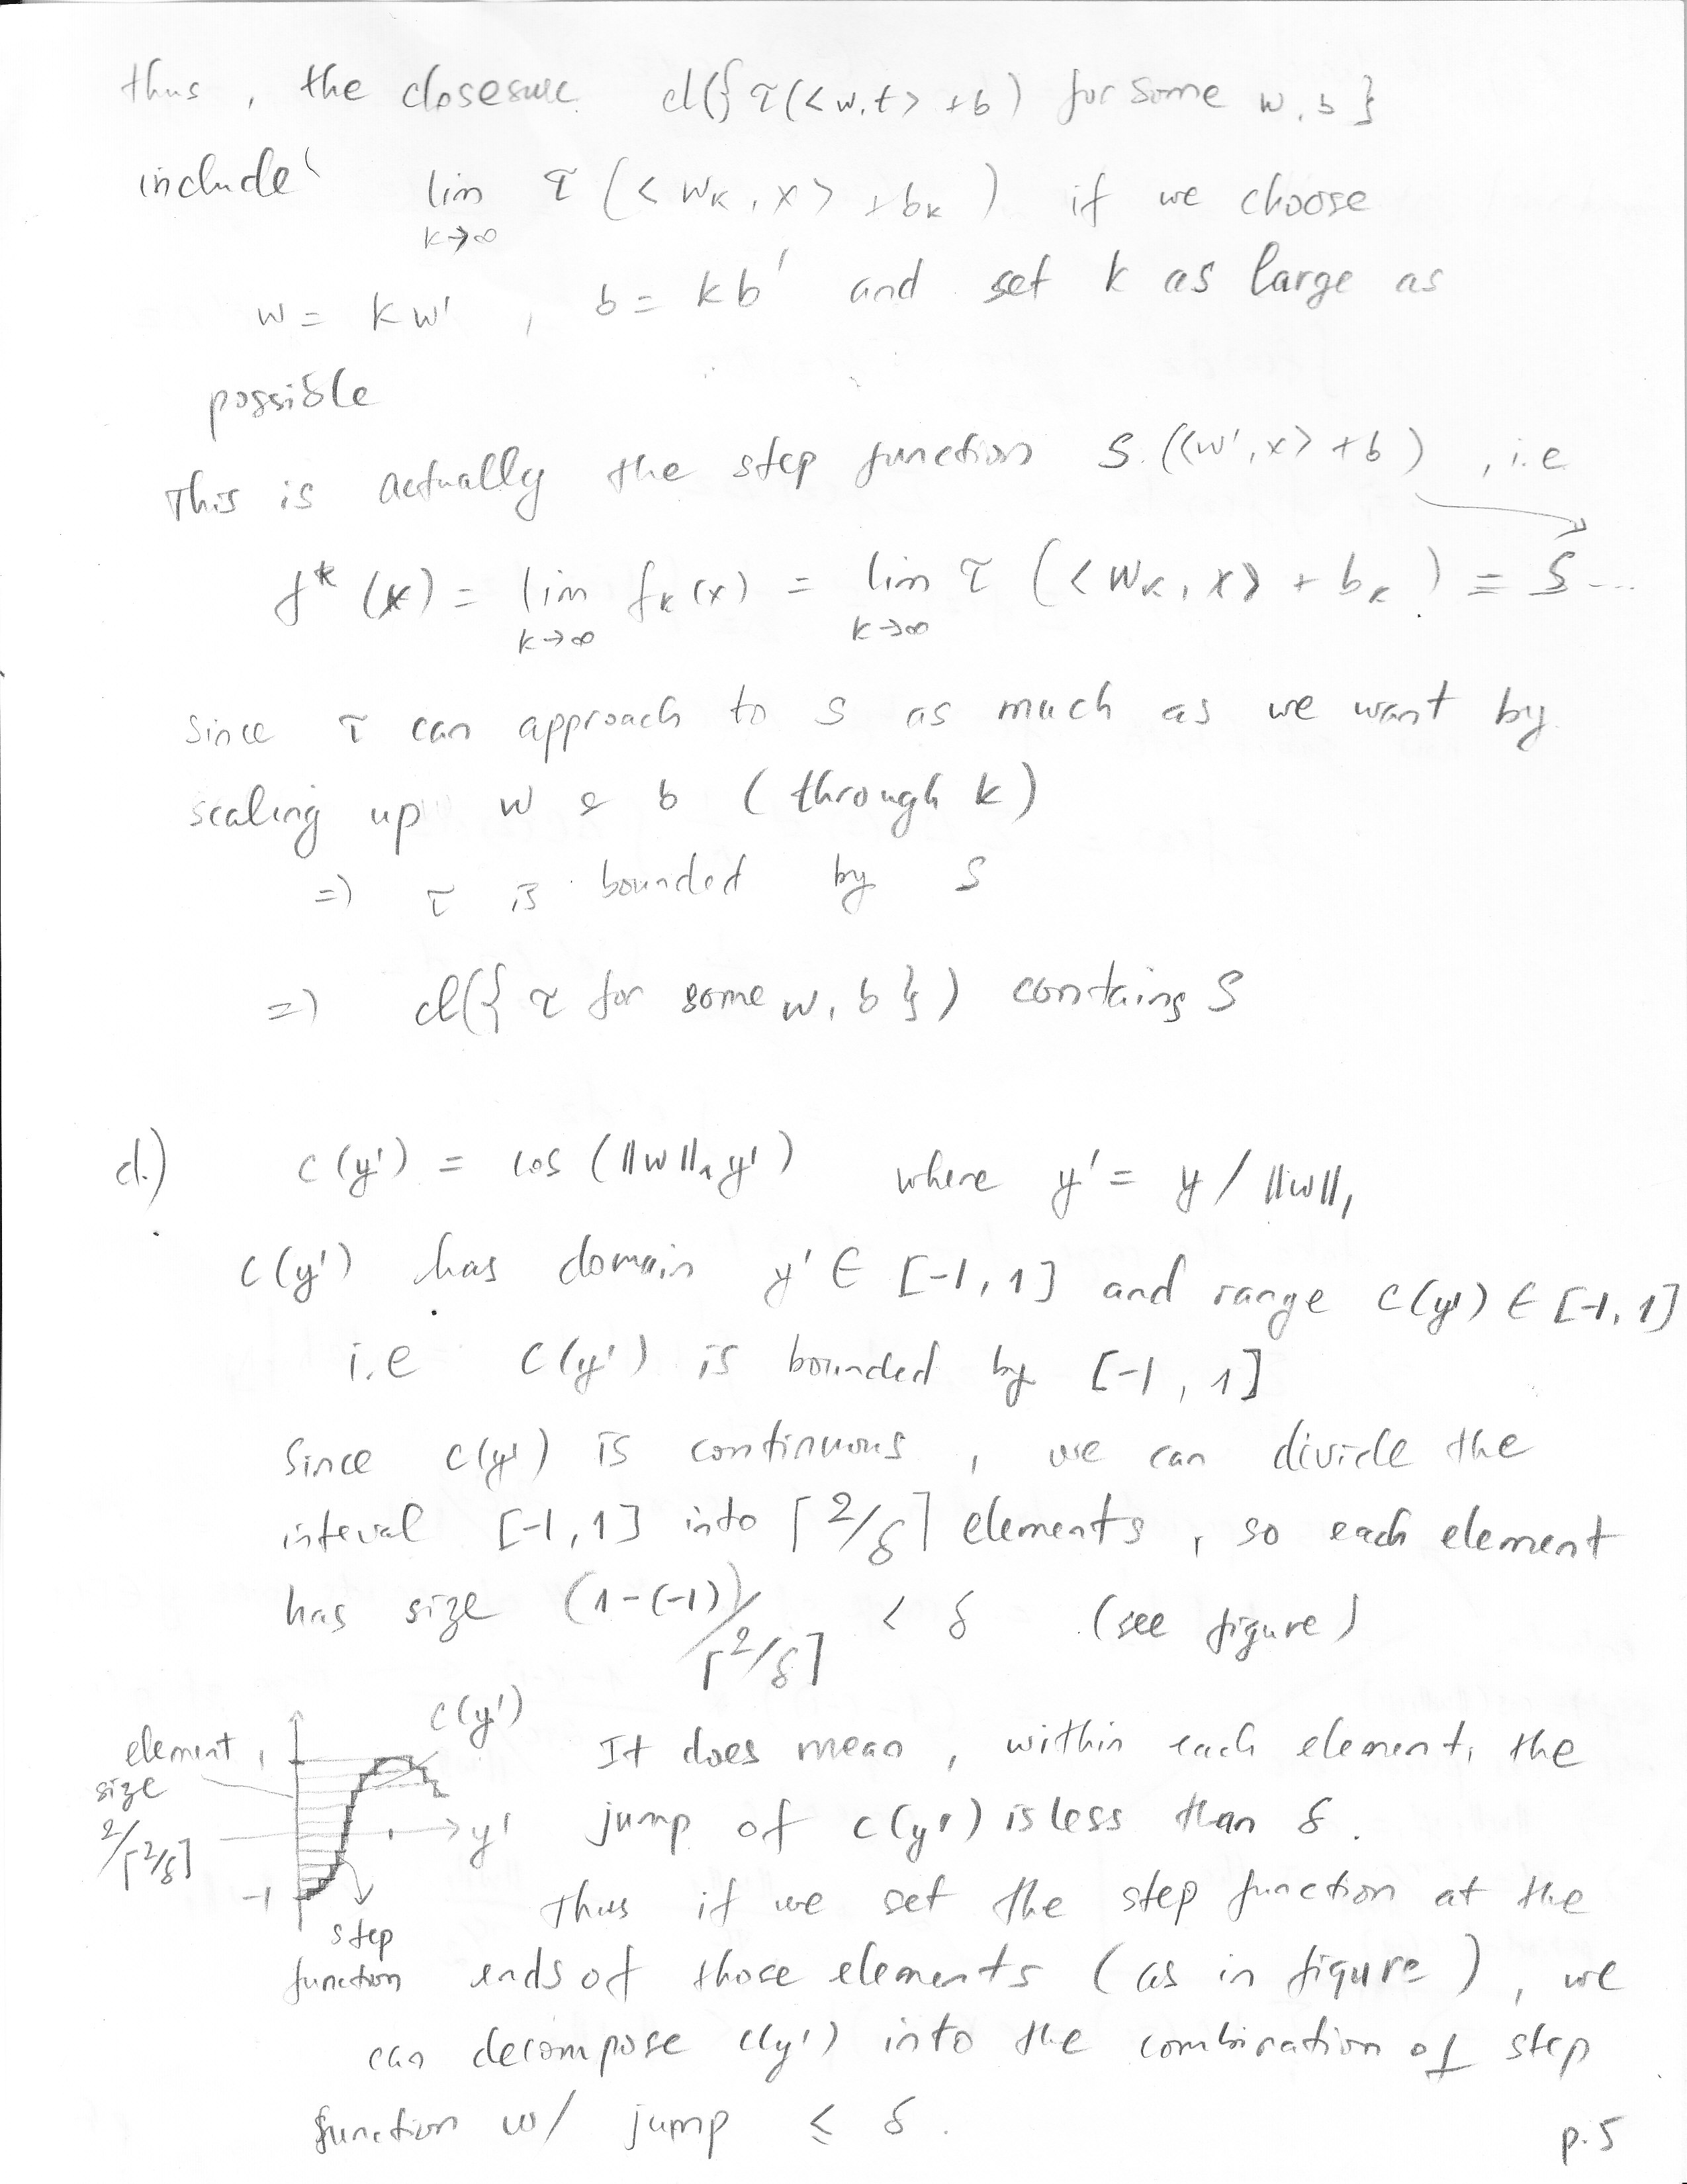 thus , the closesure cl({ τ(<w,t> +b) for some w, b }
include lim τ (< w_k , x> + b_k ) if we choose
k→∞
w = kw' , b = kb' and set k as large as
possible
This is actually the step function S ((w', x> + b) , i.e
f* (x) = lim f_k (x) = lim τ (< w_k , x> + b_k ) = S ...
k→∞ k→∞
since τ can approach to S as much as we want by
scaling up w & b ( through k )
=> τ is bounded by S
=> cl({ τ for some w, b }) contains S
d.) c (y') = cos ( ||w||₁ y' ) where y' = y / ||w||₁
c(y') has domain y' ∈ [-1, 1] and range c(y') ∈ [-1, 1]
i.e c(y') is bounded by [-1, 1]
Since c(y') is continuous , we can divide the
interval [-1, 1] into ⌈2/δ⌉ elements , so each element
has size (1-(-1))/⌈2/δ⌉ < δ (see figure)
c(y')
element
size
2/⌈2/δ⌉
1
y'
-1
step
function
It does mean , within each element, the
jump of c(y') is less than δ .
Thus if we set the step function at the
ends of those elements ( as in figure ) , we
can decompose c(y') into the combination of step
function w/ jump ≤ δ .
p.5